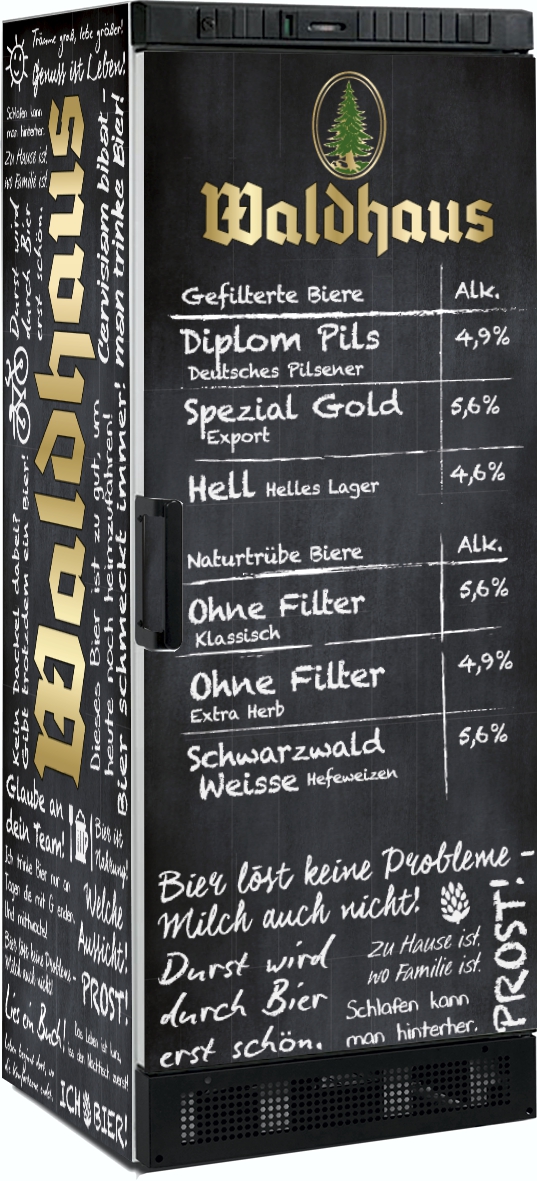 Waldhaus
Gefilterte Biere Alk.
Diplom Pils 4,9%
Deutsches Pilsener
Spezial Gold 5,6%
Export
Hell Helles Lager 4,6%
Naturtrübe Biere Alk.
Ohne Filter 5,6%
Klassisch
Ohne Filter 4,9%
Extra Herb
Schwarzwald 5,6%
Weisse Hefeweizen
Bier löst keine Probleme -
Milch auch nicht!
Durst wird
durch Bier
erst schön.
zu Hause ist,
wo Familie ist.
Schlafen kann
man hinterher.
PROST!
Träume groß, lebe größer!
Genuss ist Leben!
Schlafen kann
man hinterher.
Zu Hause ist,
wo Familie ist.
Durst wird
durch Bier
erst schön.
Waldhaus
Cervisiam bibat -
man trinke Bier!
Kein Dackel dabei?
Gibt trotzdem ein Bier!
Dieses Bier ist zu gut, um
heute noch heimzufahren!
Bier schmeckt immer!
Glaube an
dein Team!
Bier ist
Nahrung!
Ich trinke Bier nur an
Tagen die mit G enden.
Und mittwochs!
Welche
Aussicht!
Bier löst keine Probleme -
Milch auch nicht!
PROST!
Lies ein Buch!
Das Leben ist kurz,
iss den Nachtisch zuerst!
ICH BIER!